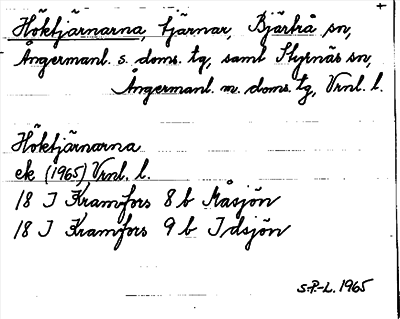 Höktjärnarna, tjärnar, Bjärtrå sn,
Ångermanl. s. doms. tg, samt Styrnäs sn,
Ångermanl. m. doms. tg, Vrnl. l.
Höktjärnarna
ek (1965) Vrnl. l.
18 I Kramfors 8 b Måsjön
18 I Kramfors 9 b Idsjön
S.P.-L. 1965